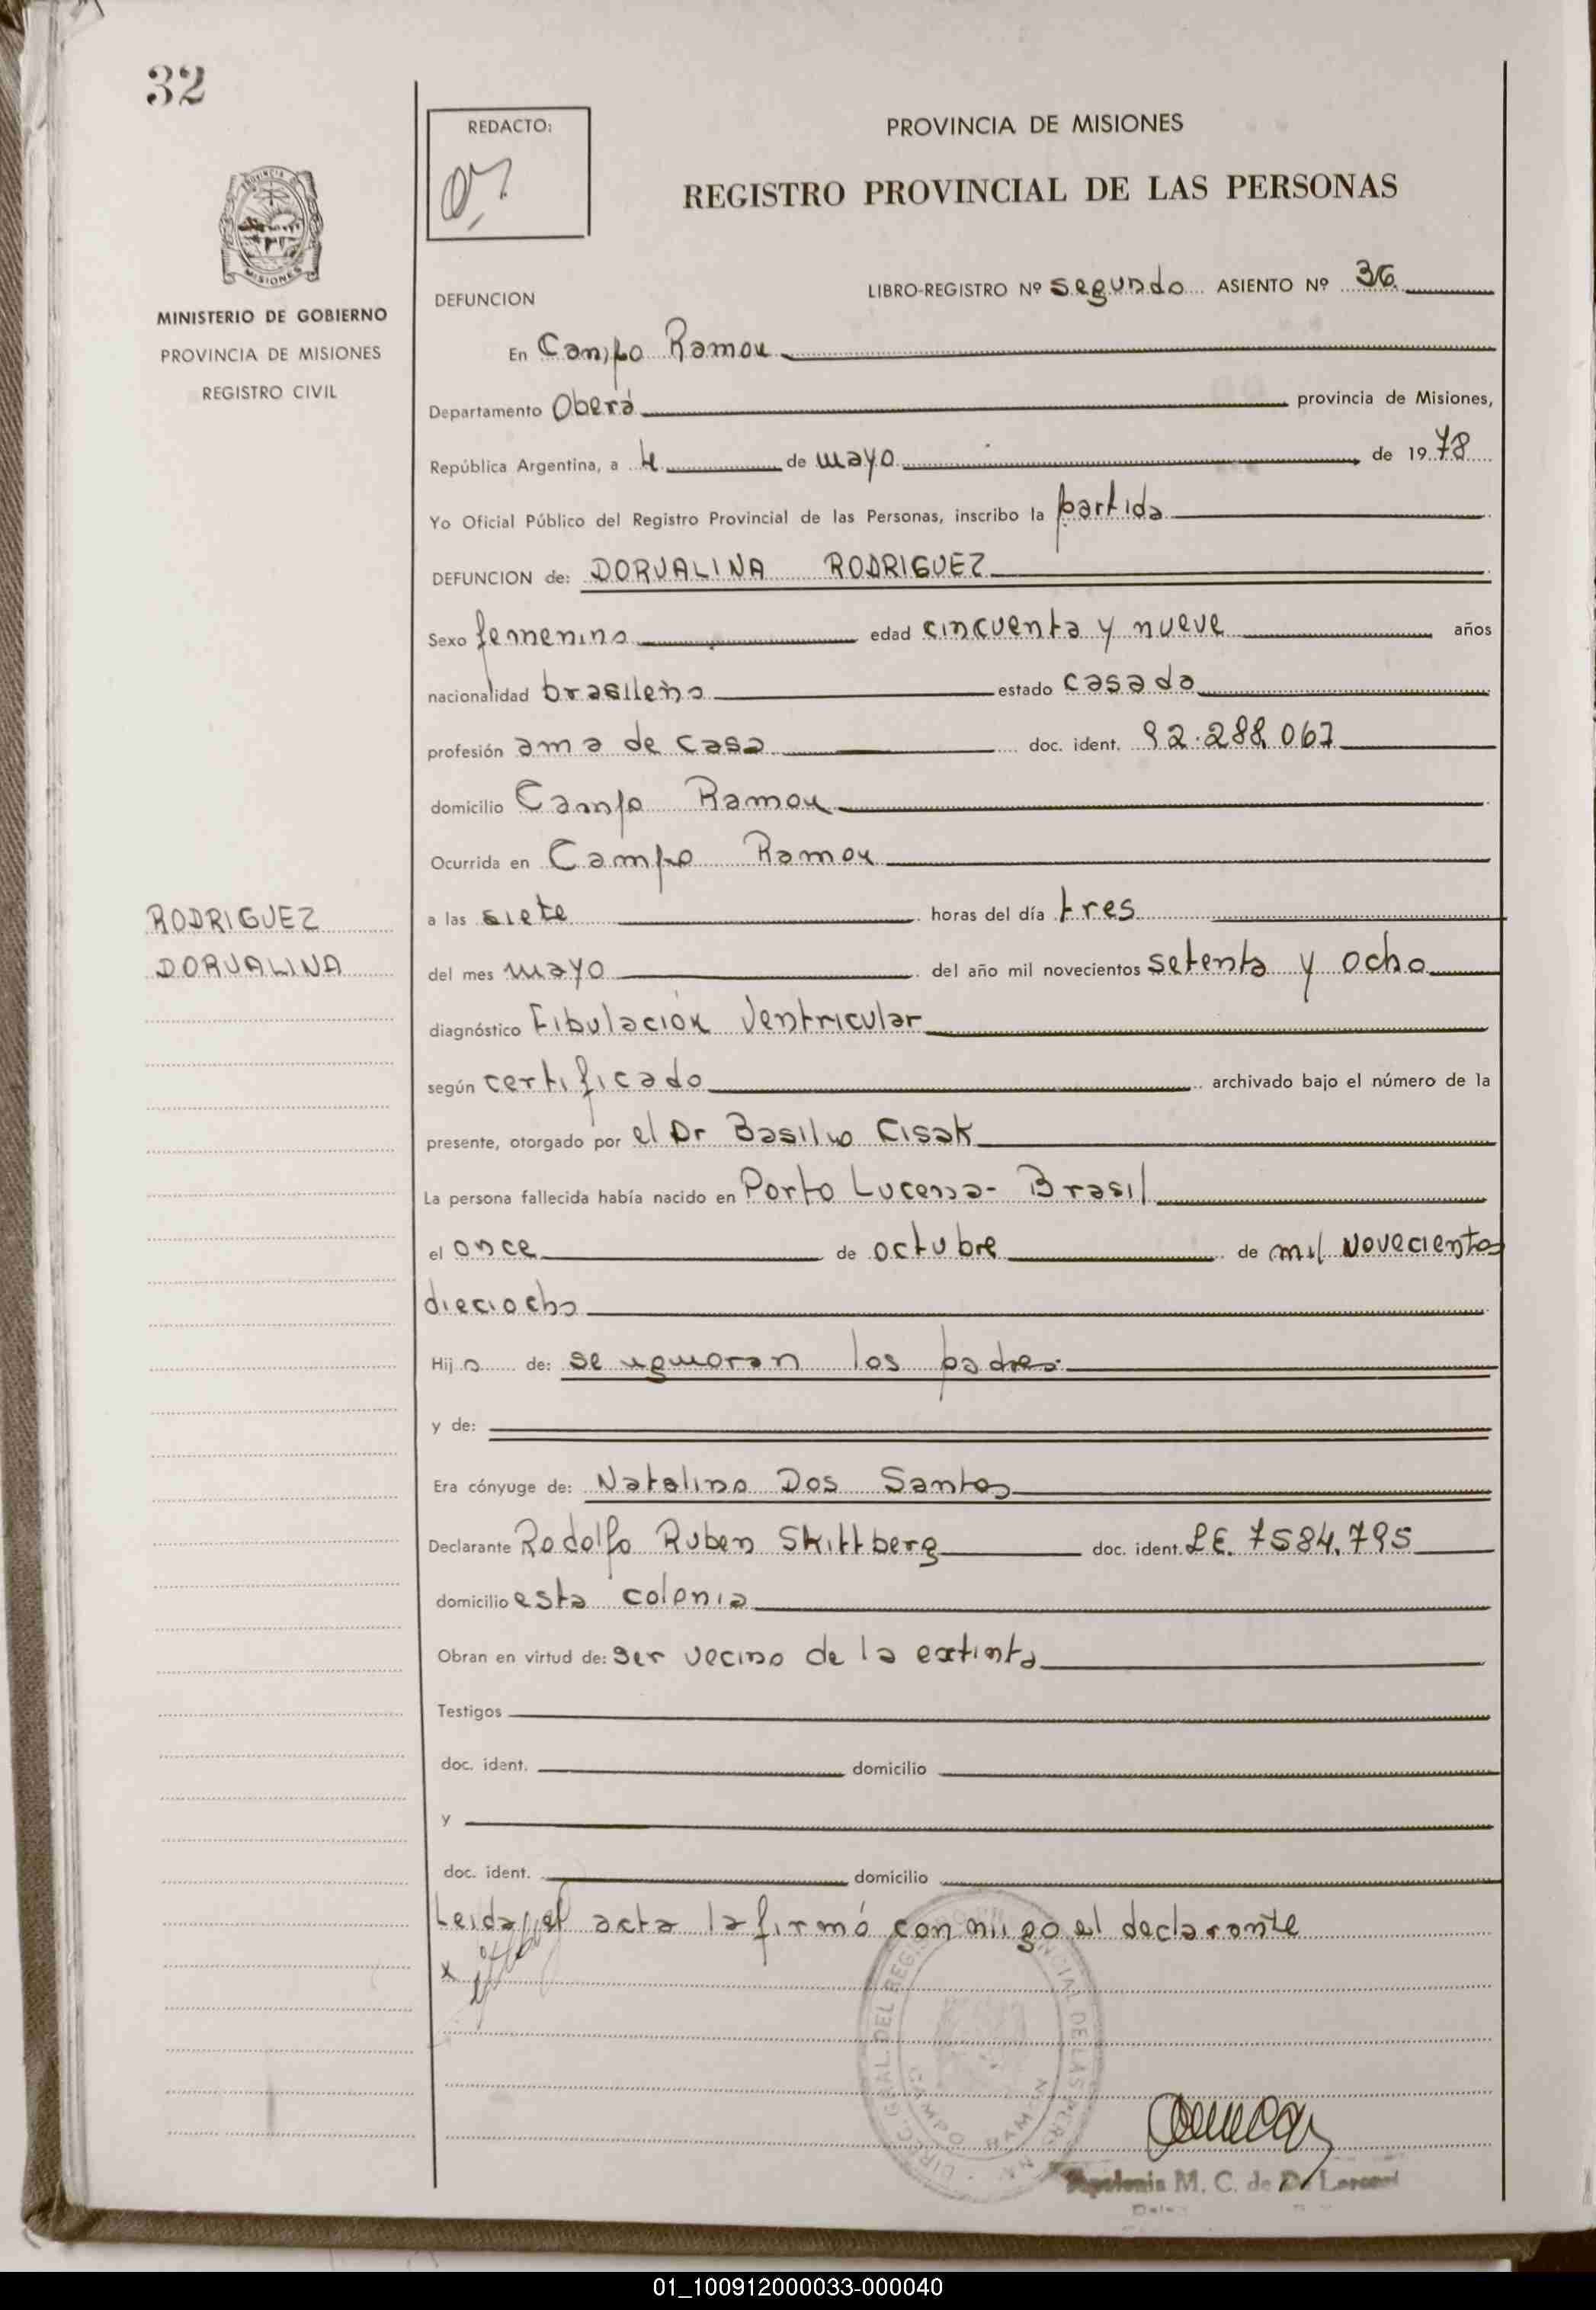 32
REDACTO:
PROVINCIA DE MISIONES
REGISTRO PROVINCIAL DE LAS PERSONAS
MISIONES
MINISTERIO DE GOBIERNO
PROVINCIA DE MISIONES
REGISTRO CIVIL
DEFUNCION
LIBRO-REGISTRO Nº segundo ASIENTO Nº 36
En Campo Ramon
Departamento Oberá provincia de Misiones,
República Argentina, a 4 de mayo de 1978
Yo Oficial Público del Registro Provincial de las Personas, inscribo la partida
DEFUNCION de: DORVALINA RODRIGUEZ
Sexo femenino edad cincuenta y nueve años
nacionalidad brasileña estado casada
profesión ama de casa doc. ident. 92.288.067
domicilio Campo Ramon
Ocurrida en Campo Ramon
RODRIGUEZ
DORVALINA
a las siete horas del día tres
del mes mayo del año mil novecientos setenta y ocho
diagnóstico Fibulación Ventricular
según certificado archivado bajo el número de la
presente, otorgado por el Dr Basilio Cisak
La persona fallecida había nacido en Porto Lucena- Brasil
el once de octubre de mil novecientos
dieciocho
Hija de: se ignoran los padres
y de:
Era cónyuge de: Natalino Dos Santos
Declarante Rodolfo Ruben Skittberg doc. ident. L.E. 7584.795
domicilio esta colonia
Obran en virtud de: ser vecino de la extinta
Testigos
doc. ident. domicilio
y
doc. ident. domicilio
Leida el acta la firmó conmigo el declarante
x
DIREC. GRAL. DEL REGISTRO PROVINCIAL DE LAS PERSONAS
CAMPO RAMON
M. C. de
01_100912000033-000040